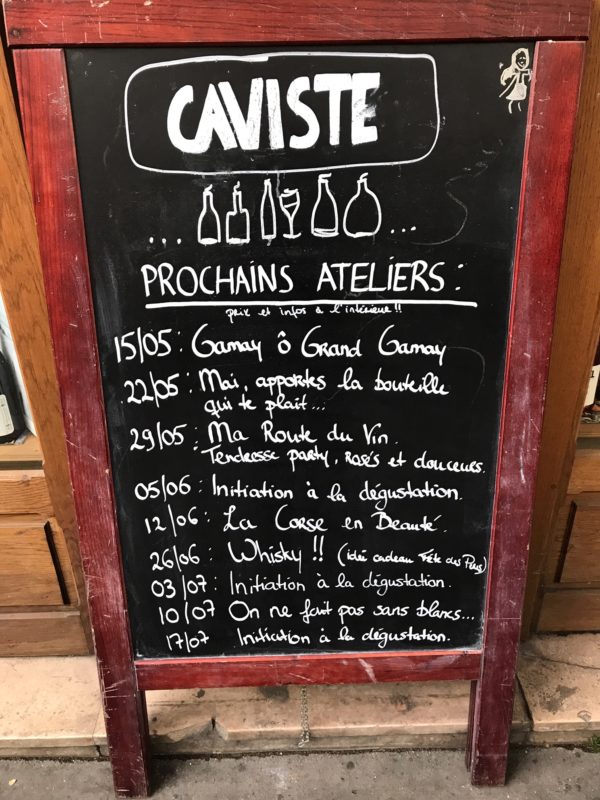 CAVISTE
... ...
PROCHAINS ATELIERS :
prix et infos à l'intérieur !!
15/05 : Gamay ô Grand Gamay
22/05 : Mai, apportes la bouteille
qui te plait...
29/05 : Ma Route du Vin.
Tendresse party, rosés et douceurs.
05/06 : Initiation à la dégustation.
12/06 : La Corse en Beauté.
26/06 : Whisky !! (idée cadeau Fête des Pères)
03/07 : Initiation à la dégustation.
10/07 On ne fait pas sans blancs...
17/07 Initiation à la dégustation.